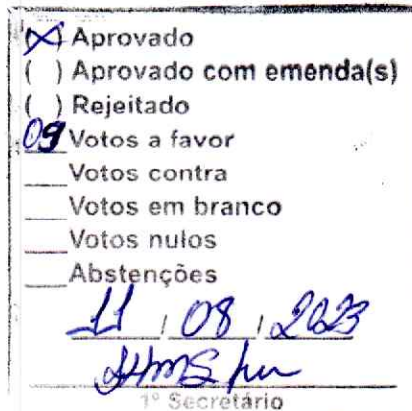 (X) Aprovado
( ) Aprovado com emenda(s)
( ) Rejeitado
09 Votos a favor
___ Votos contra
___ Votos em branco
___ Votos nulos
___ Abstenções
11 / 08 / 2023
1º Secretário